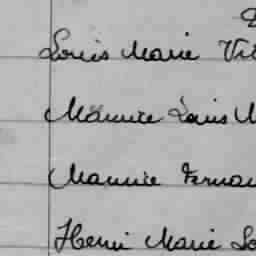 Louis Marie Vi
Maurice Louis M
Maurice Fernan
Henri Marie Lo